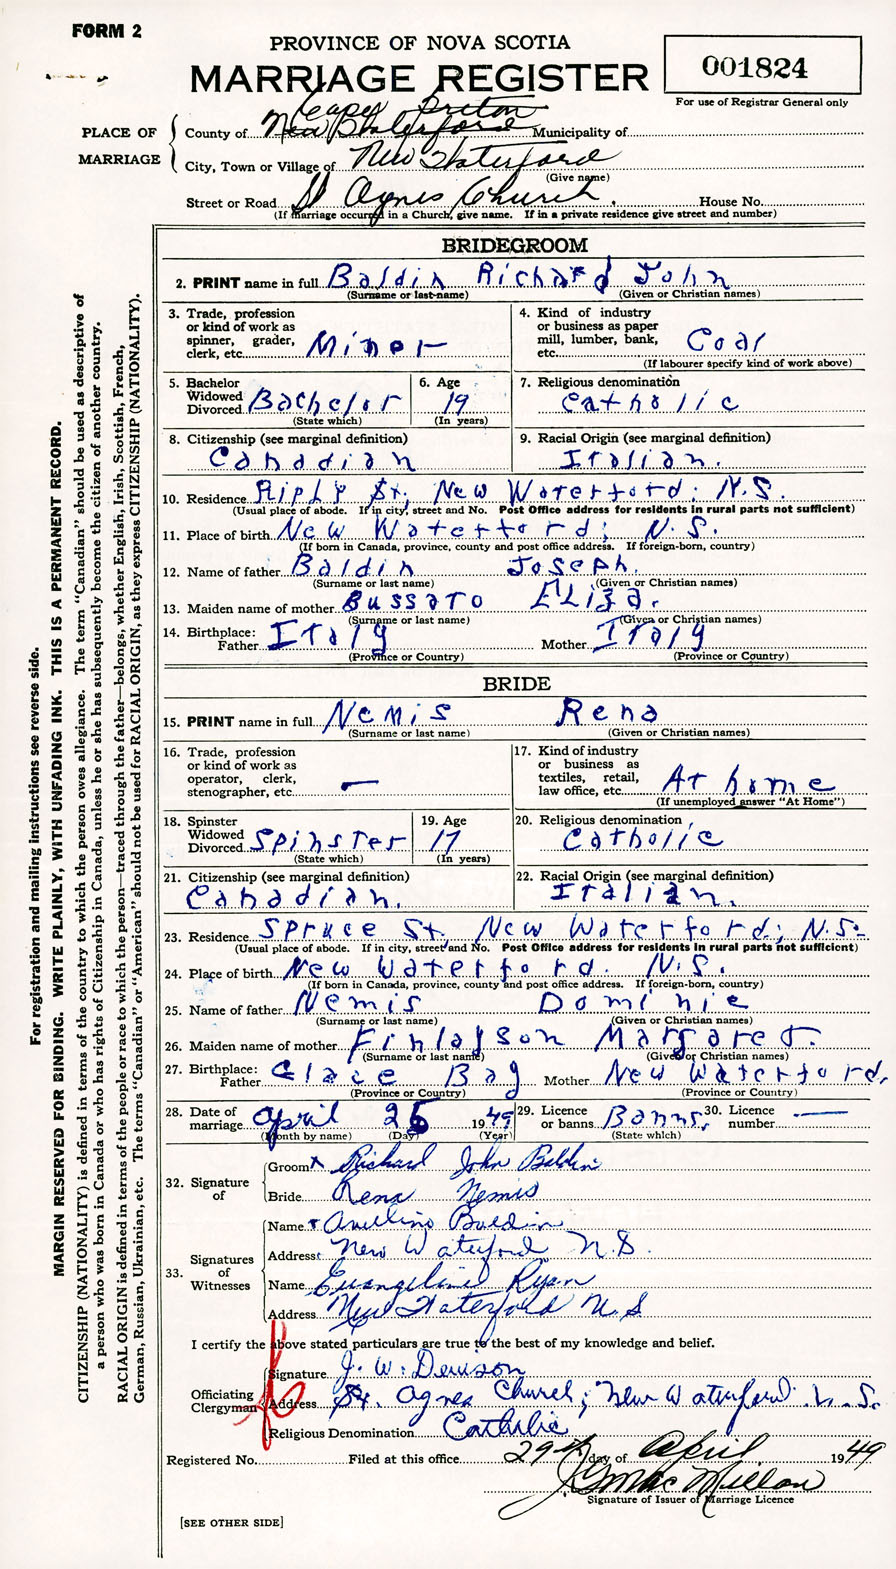 FORM 2
PROVINCE OF NOVA SCOTIA
MARRIAGE REGISTER
001824
For use of Registrar General only
PLACE OF MARRIAGE
Cape Breton
County of New Waterford Municipality of
City, Town or Village of New Waterford
(Give name)
Street or Road St Agnes Church. House No.
(If marriage occurred in a Church, give name. If in a private residence give street and number)
BRIDEGROOM
2. PRINT name in full Baldin Richard John
(Surname or last name) (Given or Christian names)
3. Trade, profession or kind of work as spinner, grader, clerk, etc. Miner
4. Kind of industry or business as paper mill, lumber, bank, etc. Coal
(If labourer specify kind of work above)
5. Bachelor Widowed Divorced Bachelor
(State which)
6. Age 19
(In years)
7. Religious denomination Catholic
8. Citizenship (see marginal definition) Canadian
9. Racial Origin (see marginal definition) Italian.
10. Residence Riply St, New Waterford; N.S.
(Usual place of abode. If in city, street and No. Post Office address for residents in rural parts not sufficient)
11. Place of birth New Waterford; N.S.
(If born in Canada, province, county and post office address. If foreign-born, country)
12. Name of father Baldin Joseph.
(Surname or last name) (Given or Christian names)
13. Maiden name of mother Bussato Eliza.
(Surname or last name) (Given or Christian names)
14. Birthplace: Father Italy Mother Italy
(Province or Country) (Province or Country)
BRIDE
15. PRINT name in full Nemis Rena
(Surname or last name) (Given or Christian names)
16. Trade, profession or kind of work as operator, clerk, stenographer, etc. —
17. Kind of industry or business as textiles, retail, law office, etc. At home
(If unemployed answer "At Home")
18. Spinster Widowed Divorced Spinster
(State which)
19. Age 17
(In years)
20. Religious denomination Catholic
21. Citizenship (see marginal definition) Canadian.
22. Racial Origin (see marginal definition) Italian.
23. Residence Spruce St, New Waterford; N.S.
(Usual place of abode. If in city, street and No. Post Office address for residents in rural parts not sufficient)
24. Place of birth New Waterford. N.S.
(If born in Canada, province, county and post office address. If foreign-born, country)
25. Name of father Nemis Dominie
(Surname or last name) (Given or Christian names)
26. Maiden name of mother Finlayson Margaret.
(Surname or last name) (Given or Christian names)
27. Birthplace: Father Glace Bay Mother New Waterford.
(Province or Country) (Province or Country)
28. Date of marriage April 25 1949
(Month by name) (Day) (Year)
29. Licence or banns Banns.
(State which)
30. Licence number —
32. Signature of
Groom x Richard John Baldin
Bride Rena Nemis
33. Signatures of Witnesses
Name Avelino Baldin
Address New Waterford N.S.
Name Evangeline Ryan
Address New Waterford N.S
I certify the above stated particulars are true to the best of my knowledge and belief.
Officiating Clergyman
Signature J. W. Denison
Address St. Agnes Church; New Waterford. N.S.
Religious Denomination Catholic
Registered No. Filed at this office 29th day of April 1949
MacMillan
Signature of Issuer of Marriage Licence
[SEE OTHER SIDE]
For registration and mailing instructions see reverse side.
MARGIN RESERVED FOR BINDING. WRITE PLAINLY, WITH UNFADING INK. THIS IS A PERMANENT RECORD.
CITIZENSHIP (NATIONALITY) is defined in terms of the country to which the person owes allegiance. The term "Canadian" should be used as descriptive of
a person who was born in Canada or who has rights of Citizenship in Canada, unless he or she has subsequently become the citizen of another country.
RACIAL ORIGIN is defined in terms of the people or race to which the person—traced through the father—belongs, whether English, Irish, Scottish, French,
German, Russian, Ukrainian, etc. The terms "Canadian" or "American" should not be used for RACIAL ORIGIN, as they express CITIZENSHIP (NATIONALITY).